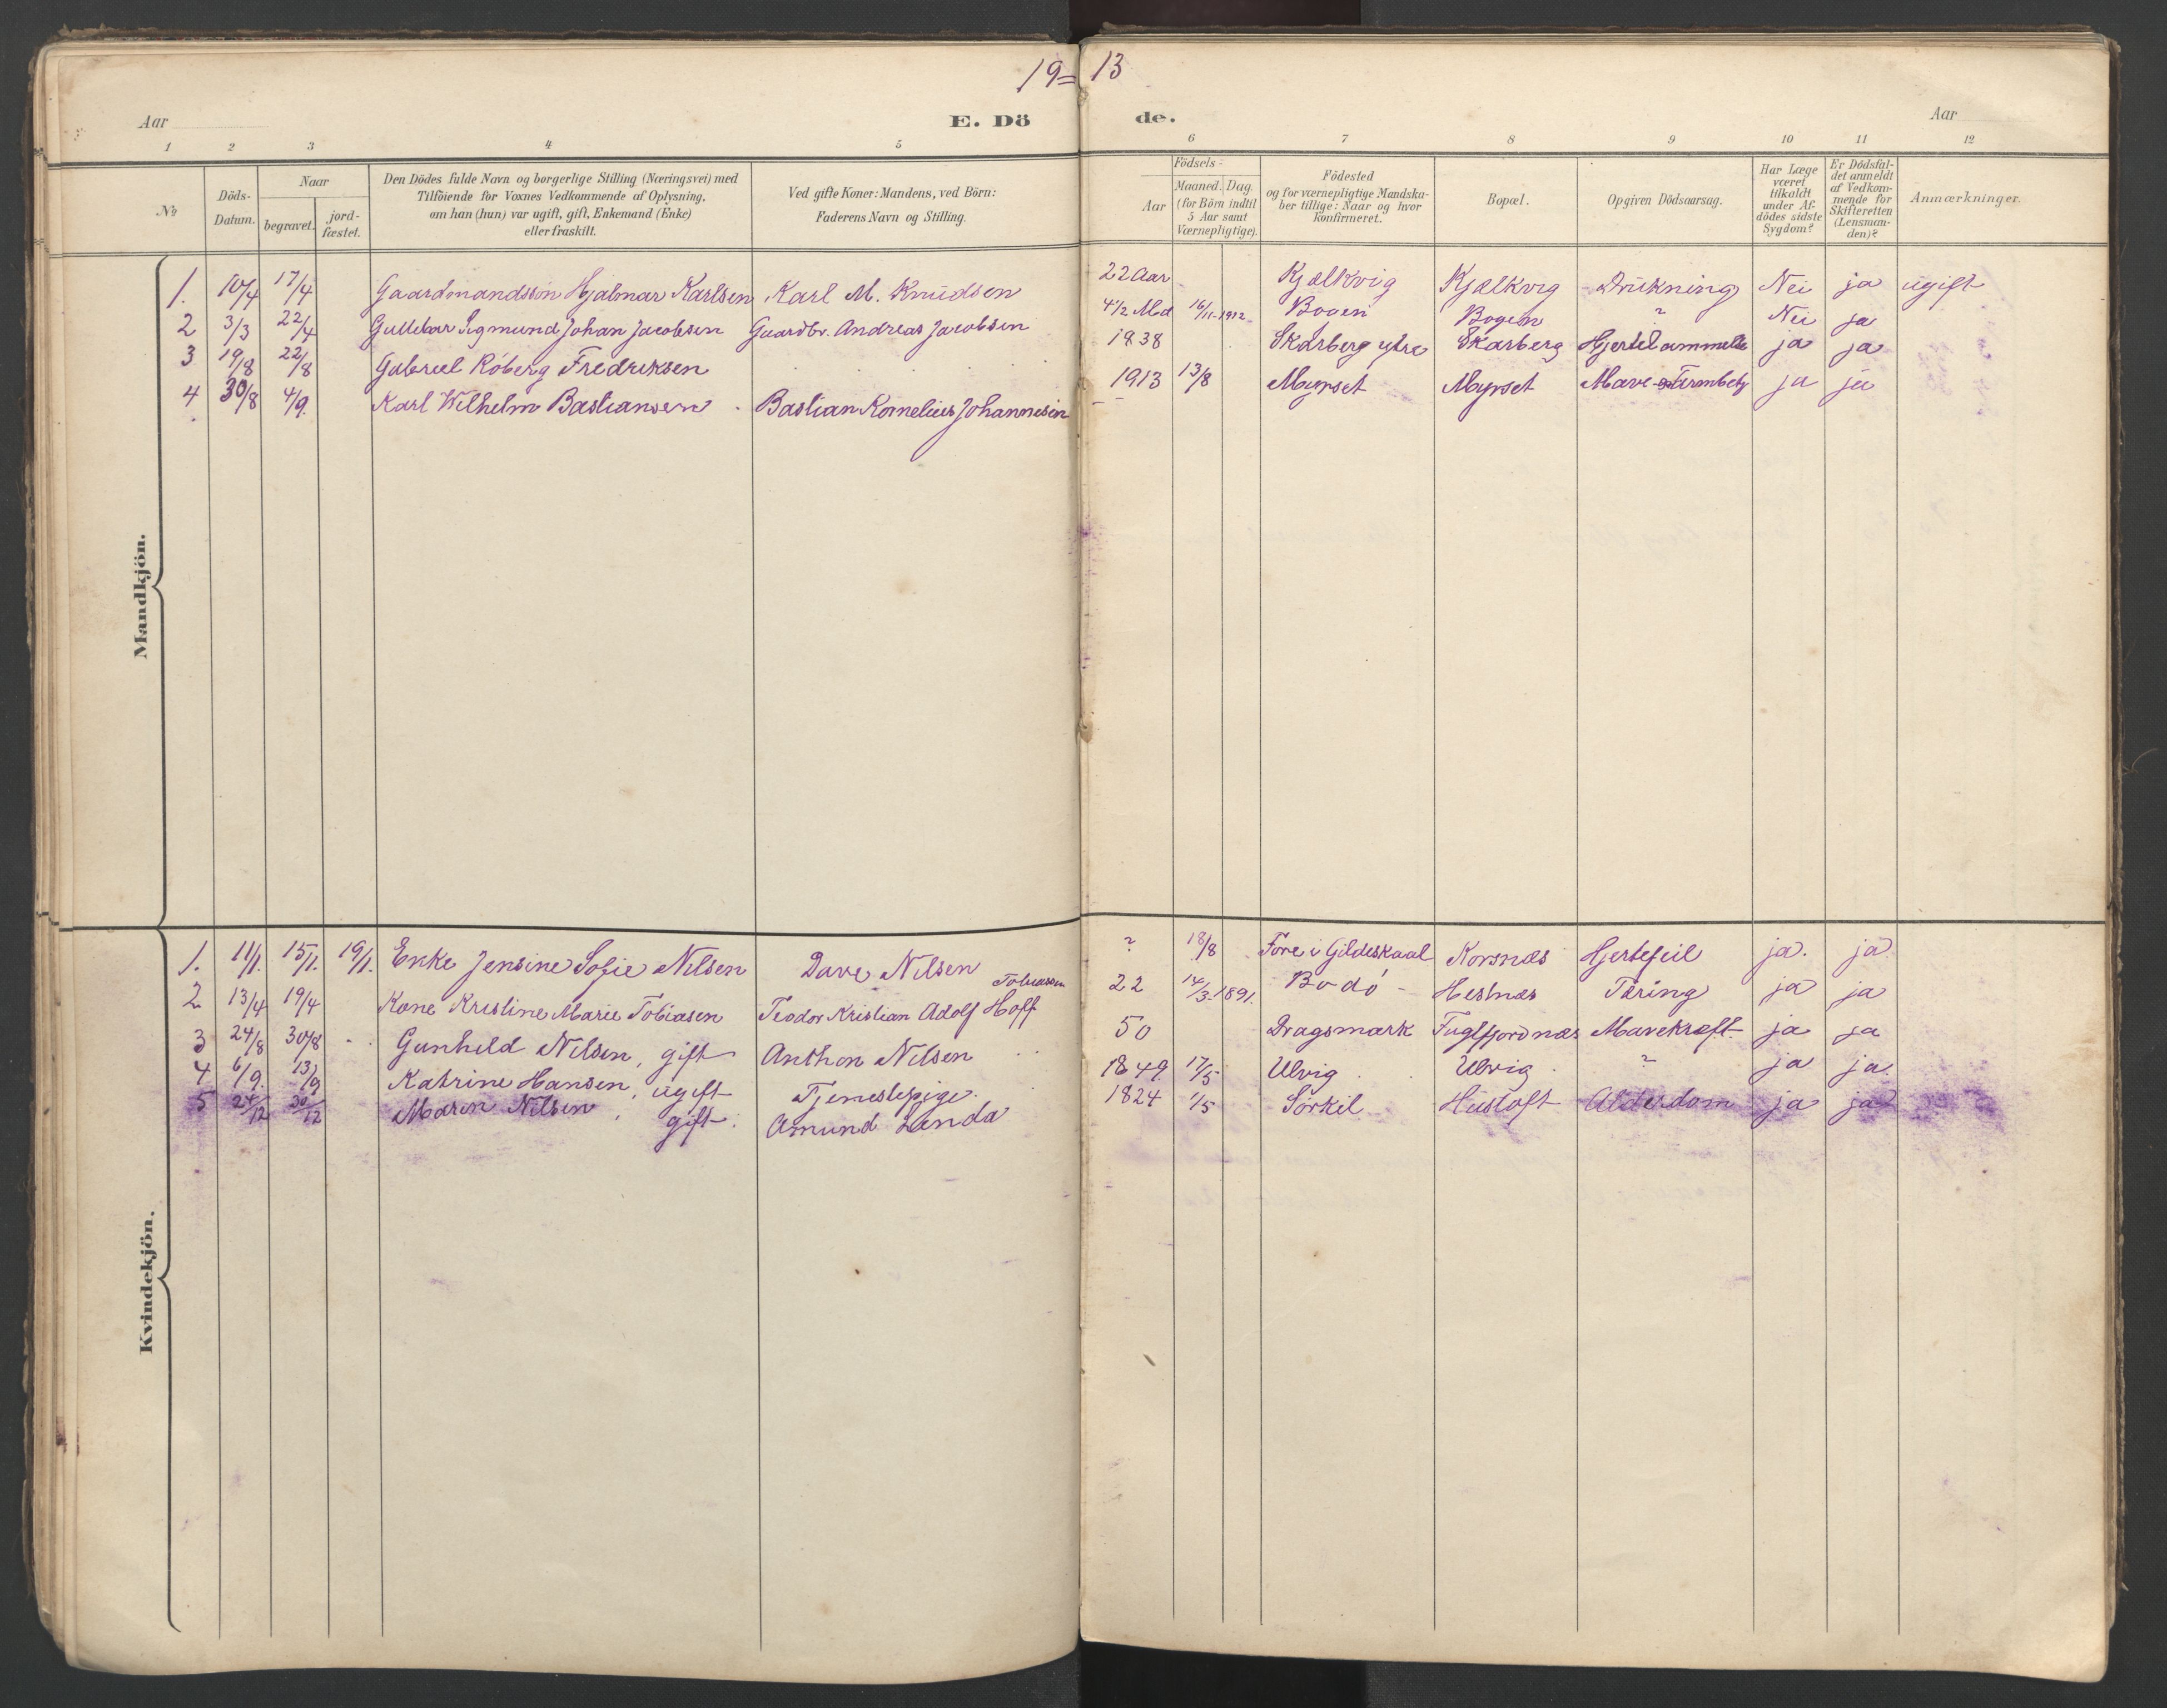 19 13
Aar E. Dö de. Aar
1 2 3 4 5 6 7 8 9 10 11 12
No
Döds-Datum.
Naar begravet. jordfæstet.
Den Dödes fulde Navn og borgerlige Stilling (Næringsvei) med
Tilföiende for Voxnes Vedkommende af Oplysning,
om han (hun) var ugift, gift, Enkemand (Enke)
eller fraskilt.
Ved gifte Koner: Mandens, ved Börn:
Faderens Navn og Stilling.
Aar
Födsels-
Maaned. Dag.
(for Börn indtil
5 Aar samt
Værnepligtige).
Födested
og for værnepligtige Mandska-
ber tillige: Naar og hvor
konfirmeret.
Bopæl.
Opgiven Dödsaarsag.
Har Læge
været
tilkaldt
under Af-
dödes sidste
Sygdom?
Er Dödsfal-
det anmeldt
af Vedkom-
mende for
Skifteretten
(Lensman-
den)?
Anmærkninger.
Mandkjön.
1. 10/4 17/4 Gaardmandssön Hjalmar Karlsen Karl M. Knudsen 22 Aar Kjælkvig Kjælkvig Drukning Nei ja ugift
2 3/3 22/4 Guttebar Sigmund Johan Jacobsen Gaardbr. Andreas Jacobsen 4 1/2 Md 16/11-1912 Bogen Bogen ? Nei ja
3 19/8 22/8 Gabriel Roberg Fredriksen 1838 Skarberg ytre Skarberg Hjertelammelse ja ja
4 30/8 4/9. Karl Wilhelm Bastiansen Bastian Kornelius Johannesen 1913 13/8 Myrset Myrset Mave- ja ja
Kvindekjön.
1. 11/1. 15/1. 19/1. Enke Jensine Sofie Nilsen Dave Nilsen ? 18/8 Före i Gildeskaal Korsnæs Hjertefeil ja. ja
Tobiassen
2 13/4 19/4 Kone Kristine Marie Tobiasen Teodor Kristian Adolf Hoff 22 14/3-1891. Bodö Hestnæs Tæring ja ja
3 24/8 30/8 Gunhild Nilsen, gift Anthon Nilsen 50 Dragsmark Fuglfjordnæs Mavekræft ja ja
4 6/9. 13/9 Katrine Hansen, ugift Tjenestepige. 1849 17/5 Ulvig Ulvig ? ja ja.
5 24/12 30/12 Maren Nilsen, gift. Amund Landa 1824 1/5 Sörkil Hustoft Alderdom ja ja